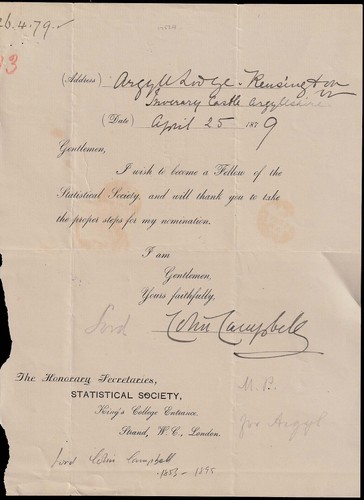 26.4.79.
(Address) Argyll Lodge. Kensington
Inverary Castle Argyllshire
(Date) April 25 1879
Gentlemen,
I wish to become a Fellow of the
Statistical Society, and will thank you to take
the proper steps for my nomination.
I am
Gentlemen,
Yours faithfully,
Lord Colin Campbell
The Honorary Secretaries,
STATISTICAL SOCIETY,
King's College Entrance.
Strand, W.C., London.
M.P.
for Argyl
Lord Colin Campbell
1853-1895